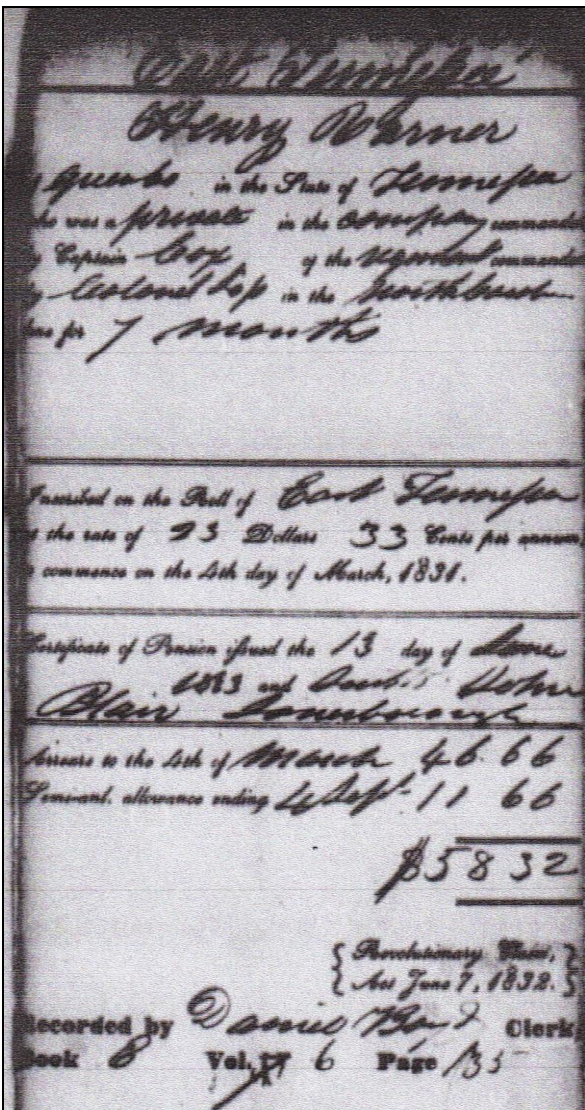 East Tennessee
Henry Varner
Greene in the State of Tennessee
who was a private in the company commanded
Captain Cox of the regiment commanded
by Colonel in the
line for 7 months
Inscribed on the Roll of East Tennessee
at the rate of 23 Dollars 33 Cents per annum,
to commence on the 4th day of March, 1831.
Certificate of Pension issued the 13 day of June
and John
Blair Jonesborough
Arrears to the 4th of March 46.66
Semi-anl. allowance ending 4 Sept 11 66
$58 32
{ Revolutionary Claim, }
{ Act June 7, 1832. }
Recorded by Daniel Boyd Clerk,
Book E Vol. 6 Page 135